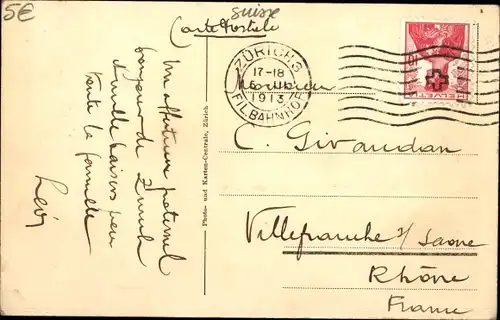 5€
suisse
Carte Postale
ZÜRICH 3
17-18
1913
FILBAHNHOF
HELVETIA
Monsieur
C. Givaudan
Villefranche s/ Saone
Rhône
France
Un affectueux fraternel
bonjour de Zurich
et mille baisers pour
toute la famille
Léon
Photo- und Karten-Centrale, Zürich